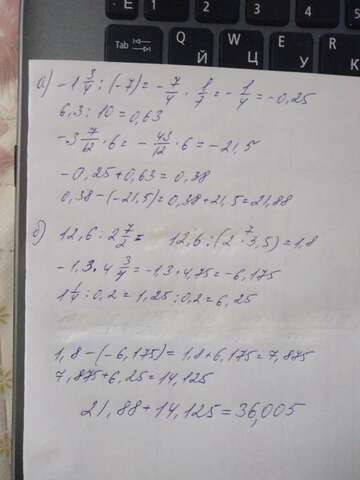 E
Tab
Й
Ц
У
К
а) -1 3/4 : (-7) = - 7/4 · 1/7 = - 1/4 = -0,25
6,3 : 10 = 0,63
-3 7/12 · 6 = - 43/12 · 6 = -21,5
-0,25 + 0,63 = 0,38
0,38 - (-21,5) = 0,38 + 21,5 = 21,88
б) 12,6 : 2 7/2 = 12,6 : (2 · 3,5) = 1,8
-1,3 · 4 3/4 = -1,3 · 4,75 = -6,175
1 1/4 : 0,2 = 1,25 : 0,2 = 6,25
1,8 - (-6,175) = 1,8 + 6,175 = 7,875
7,875 + 6,25 = 14,125
21,88 + 14,125 = 36,005